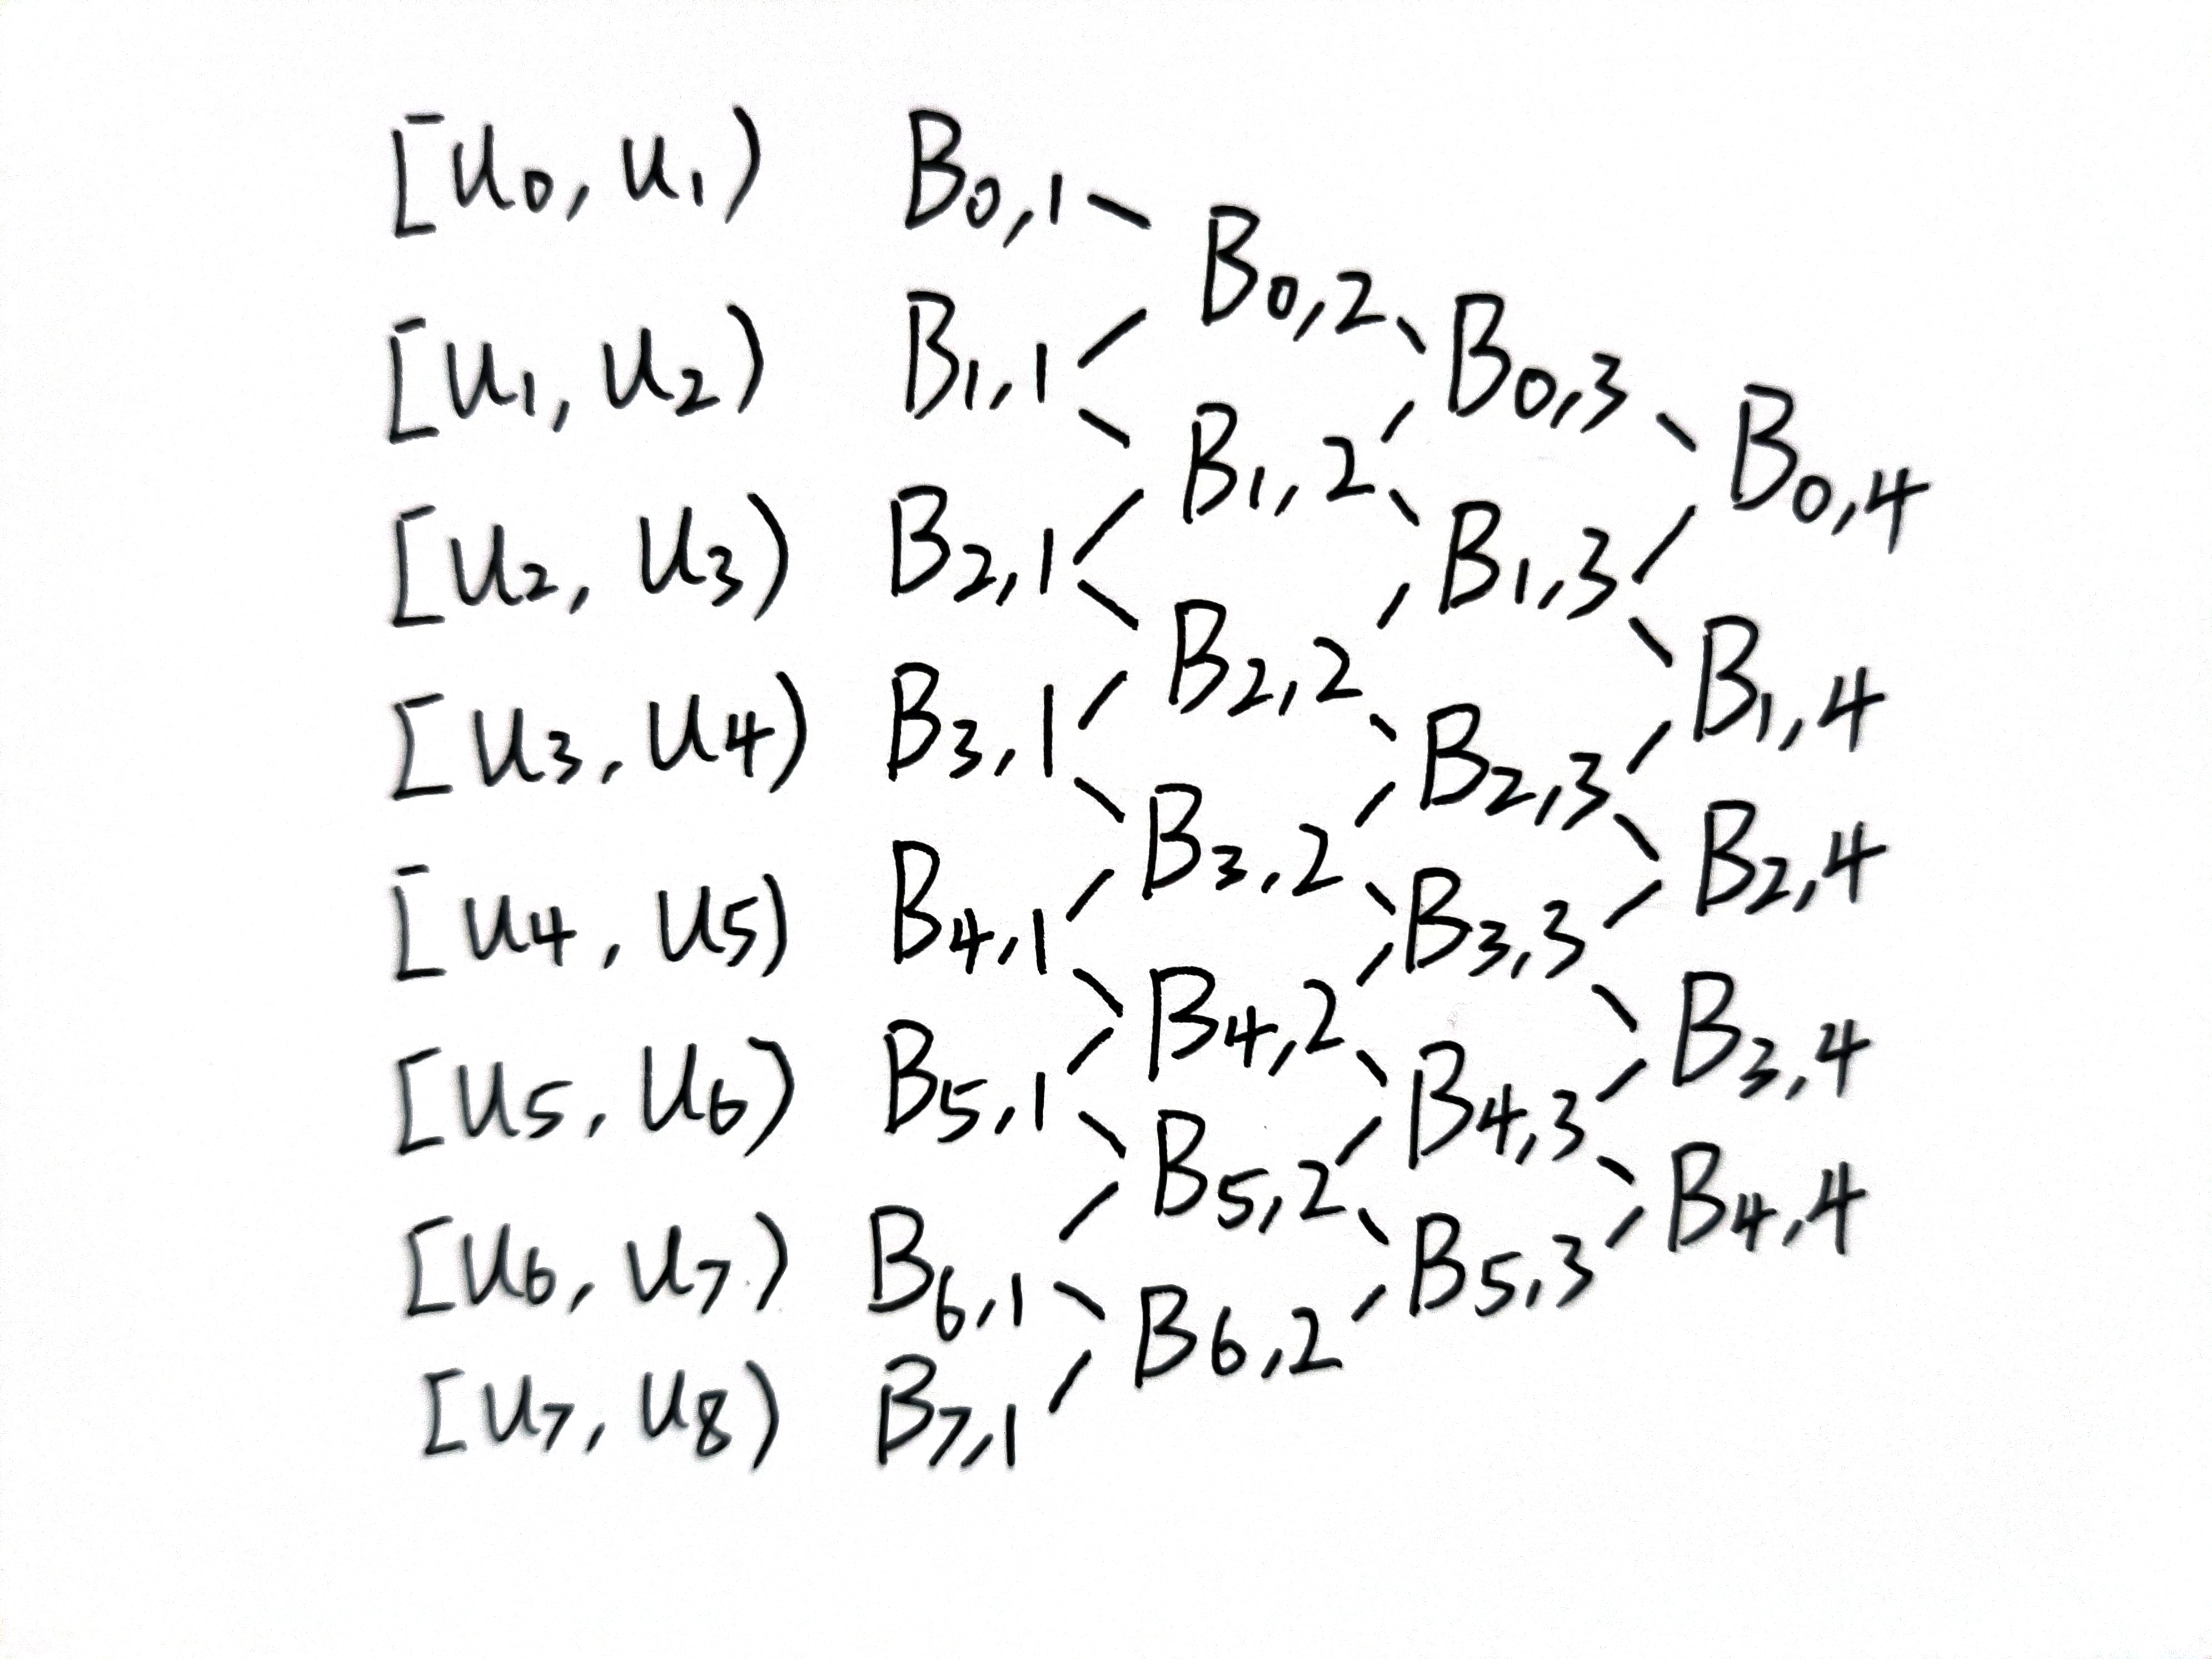 [u₀, u₁) B₀,₁
B₀,₂
[u₁, u₂) B₁,₁
B₀,₃
B₁,₂
B₀,₄
[u₂, u₃) B₂,₁
B₁,₃
B₂,₂
B₁,₄
[u₃, u₄) B₃,₁
B₂,₃
B₃,₂
B₂,₄
[u₄, u₅) B₄,₁
B₃,₃
B₄,₂
B₃,₄
[u₅, u₆) B₅,₁
B₄,₃
B₅,₂
B₄,₄
[u₆, u₇) B₆,₁
B₅,₃
B₆,₂
[u₇, u₈) B₇,₁